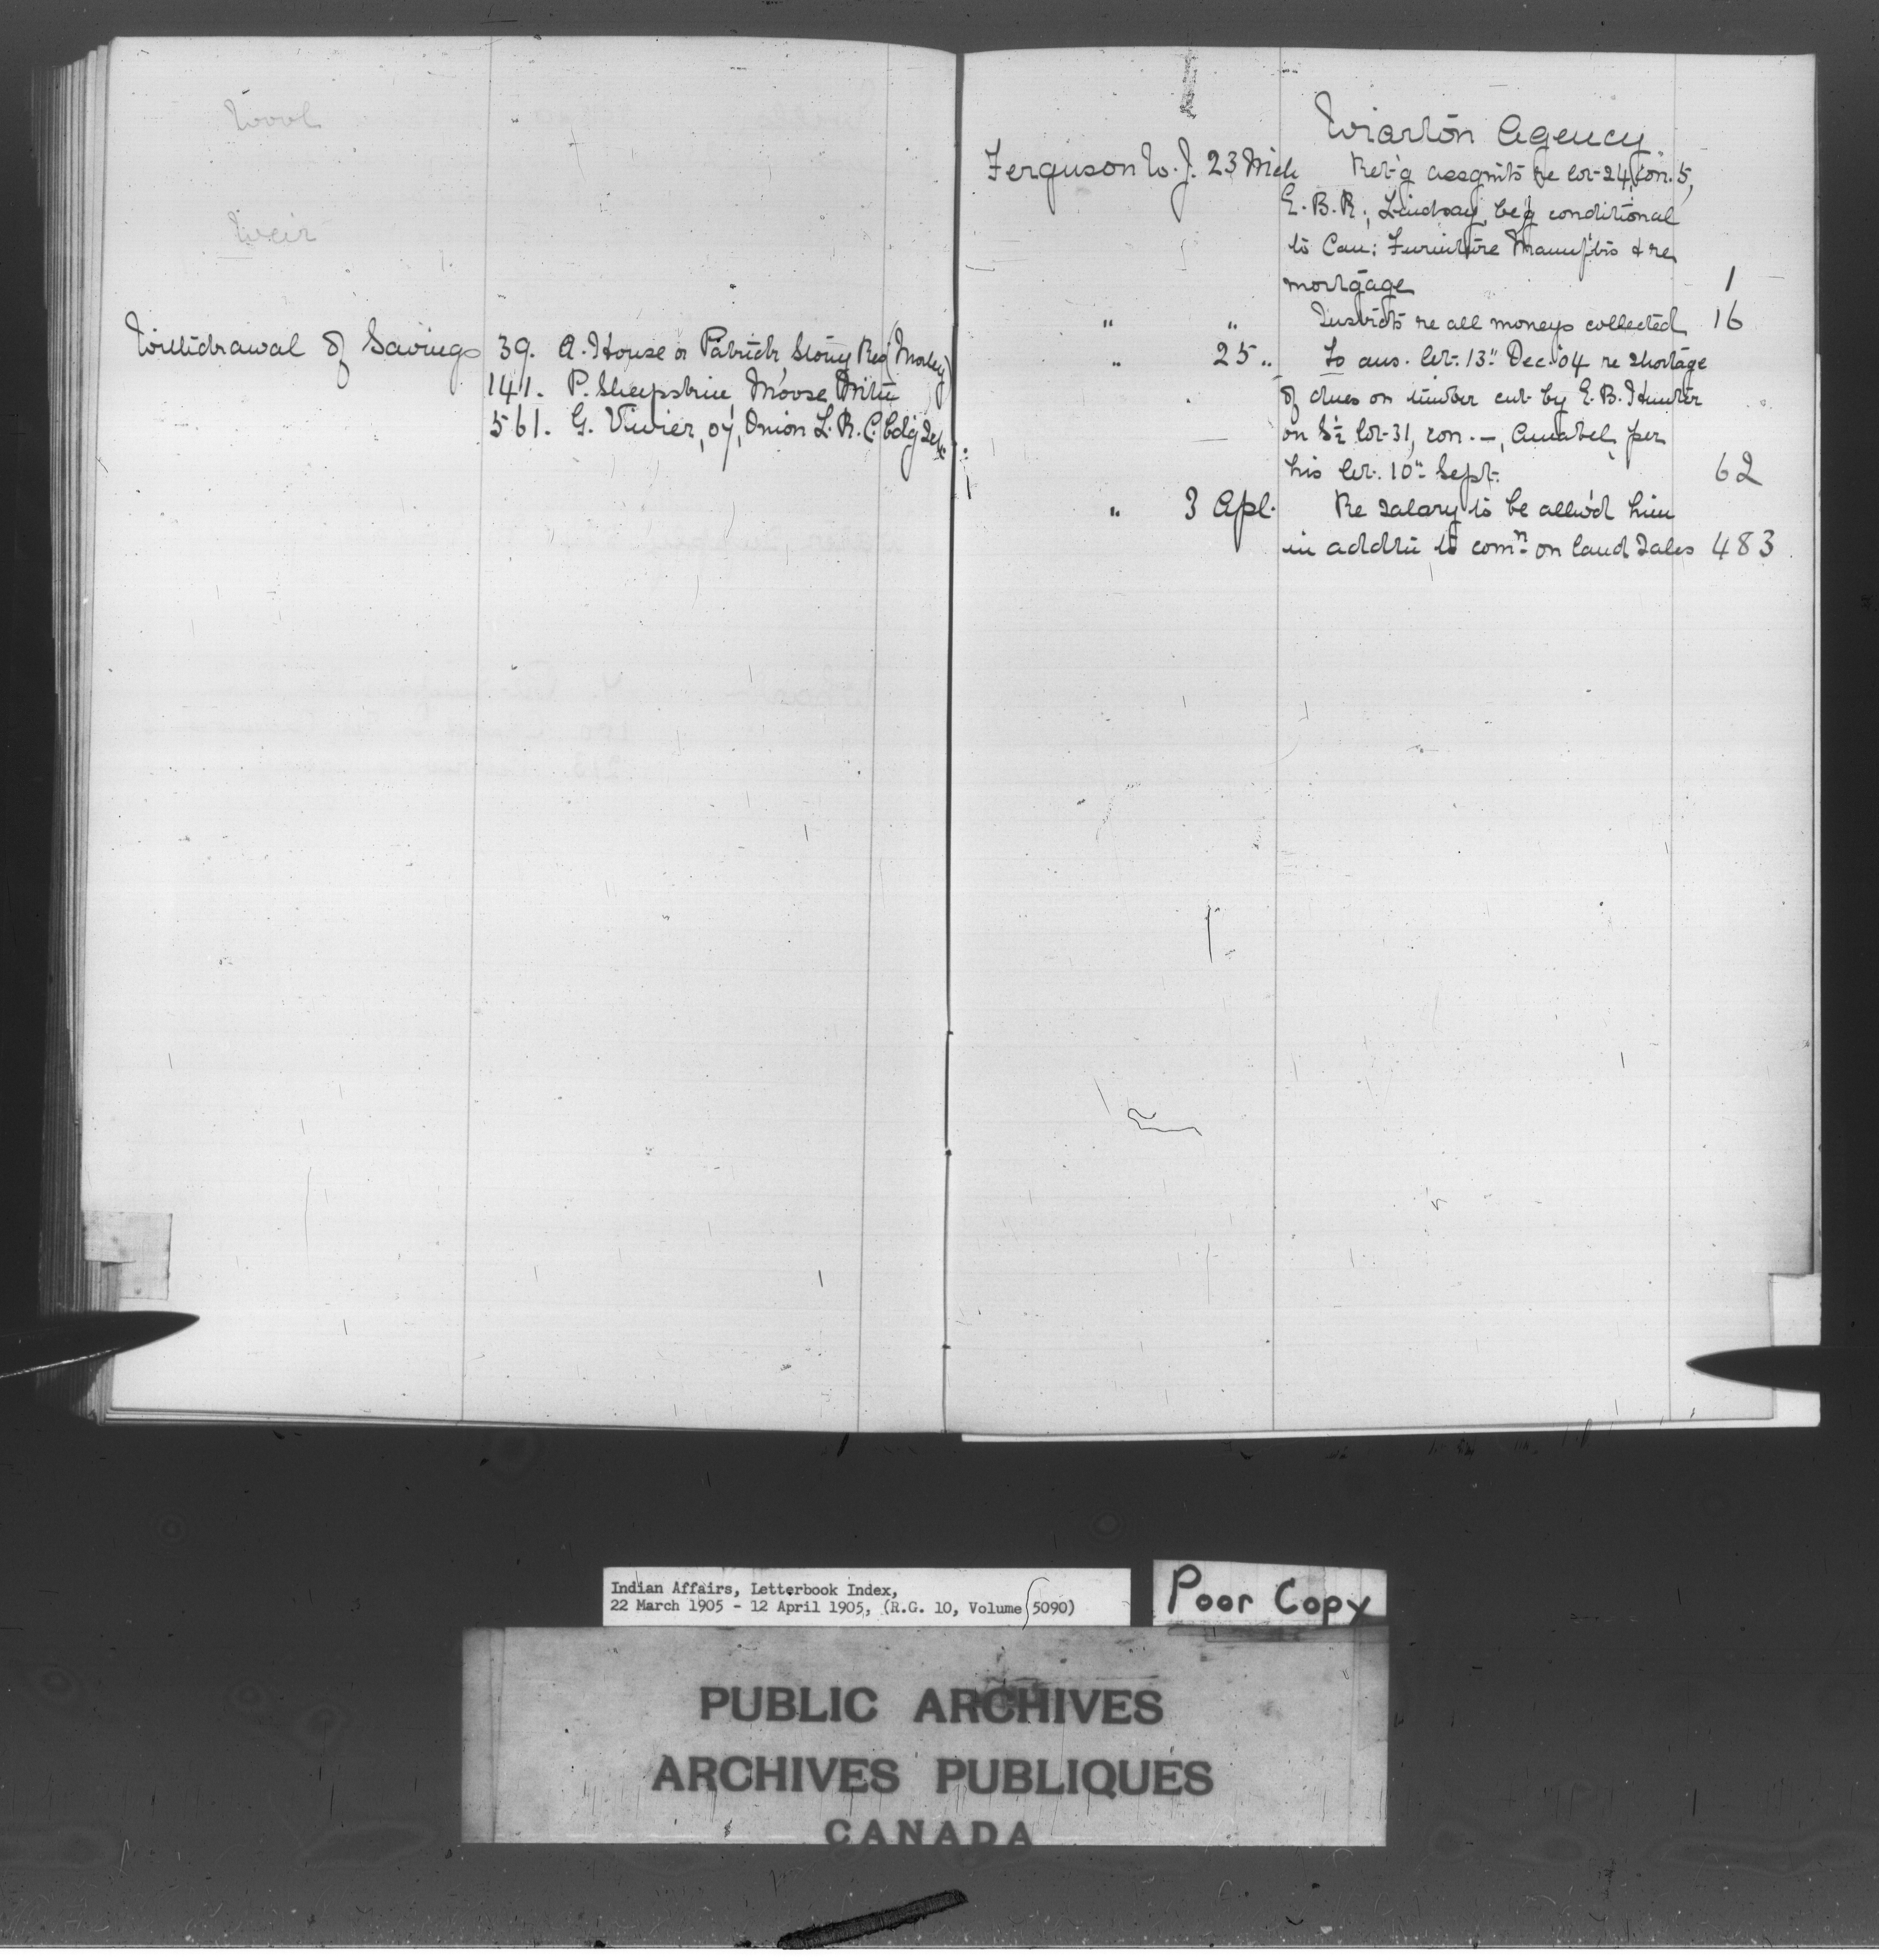 Wool
Weir
Withdrawal of Savings 39. A. House or Patrick, Stony Res (Morley)
141. P. Sheepskin, Moose Mtn
561. G. Vivier, o/, Onion L. R.C. bdg Sch.
Wiarton Agency
Ferguson W. J. 23 Mch Ret'g assgmts re lot 24, Con. 5,
E. B. R., Lindsay, be'g conditional
to Can: Furniture Manuf'trs & re
mortgage 1
" " Instrcts re all moneys collected 16
" 25 " To ans. let. 13" Dec. '04 re shortage
of dues on timber cut by E. B. Hunter
on S½ lot 31, con. —, Amabel, per
his let. 10" Sept. 62
" 3 Apl. Re salary to be allw'd him
in addtn to comn on land sales 483
Indian Affairs, Letterbook Index,
22 March 1905 - 12 April 1905, (R.G. 10, Volume 5090)
Poor Copy
PUBLIC ARCHIVES
ARCHIVES PUBLIQUES
CANADA